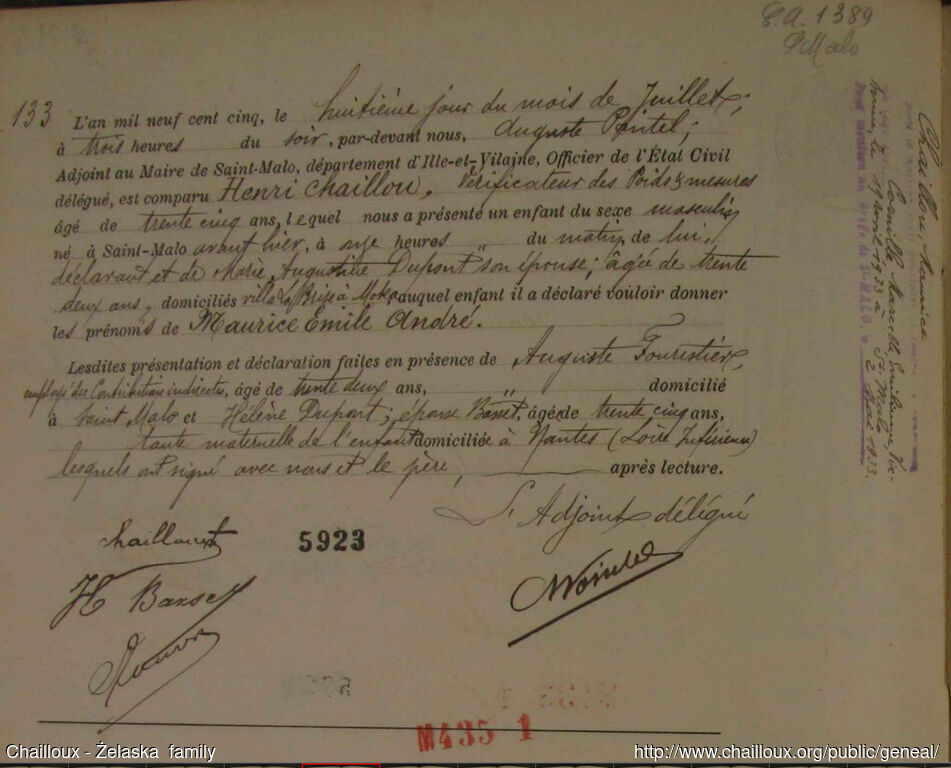 C.A. 1389
St Malo
133
L'an mil neuf cent cinq, le huitième jour du mois de Juillet,
à trois heures du soir, par-devant nous, Auguste Pointel,
Adjoint au Maire de Saint-Malo, département d'Ille-et-Vilaine, Officier de l'État Civil
délégué, est comparu Henri Chailloux, Vérificateur des Poids & mesures
âgé de trente cinq ans, lequel nous a présenté un enfant du sexe masculin
né à Saint-Malo avant hier, à onze heures " du matin, de lui,
déclarant et de Marie, Augustine Dupont son épouse; âgée de trente
deux ans, domiciliés villa La Brise à Moka auquel enfant il a déclaré vouloir donner
les prénoms de Maurice Emile André.
Lesdites présentation et déclaration faites en présence de Auguste Fourestier,
employé des Contributions indirectes, âgé de trente deux ans, " domicilié
à Saint Malo et Hélène Dupont; épouse Basset, âgée de trente cinq ans,
tante maternelle de l'enfant domiciliée à Nantes (Loire Inférieure)
lesquels ont signé avec nous et le père, après lecture.
L'Adjoint délégué
Chailloux
5923
H Basset
M435 1
Chailloux, Maurice
Cornille
19 avril 1933 à St Malo
2 mai 1933.
Chailloux - Želaska family
http://www.chailloux.org/public/geneal/